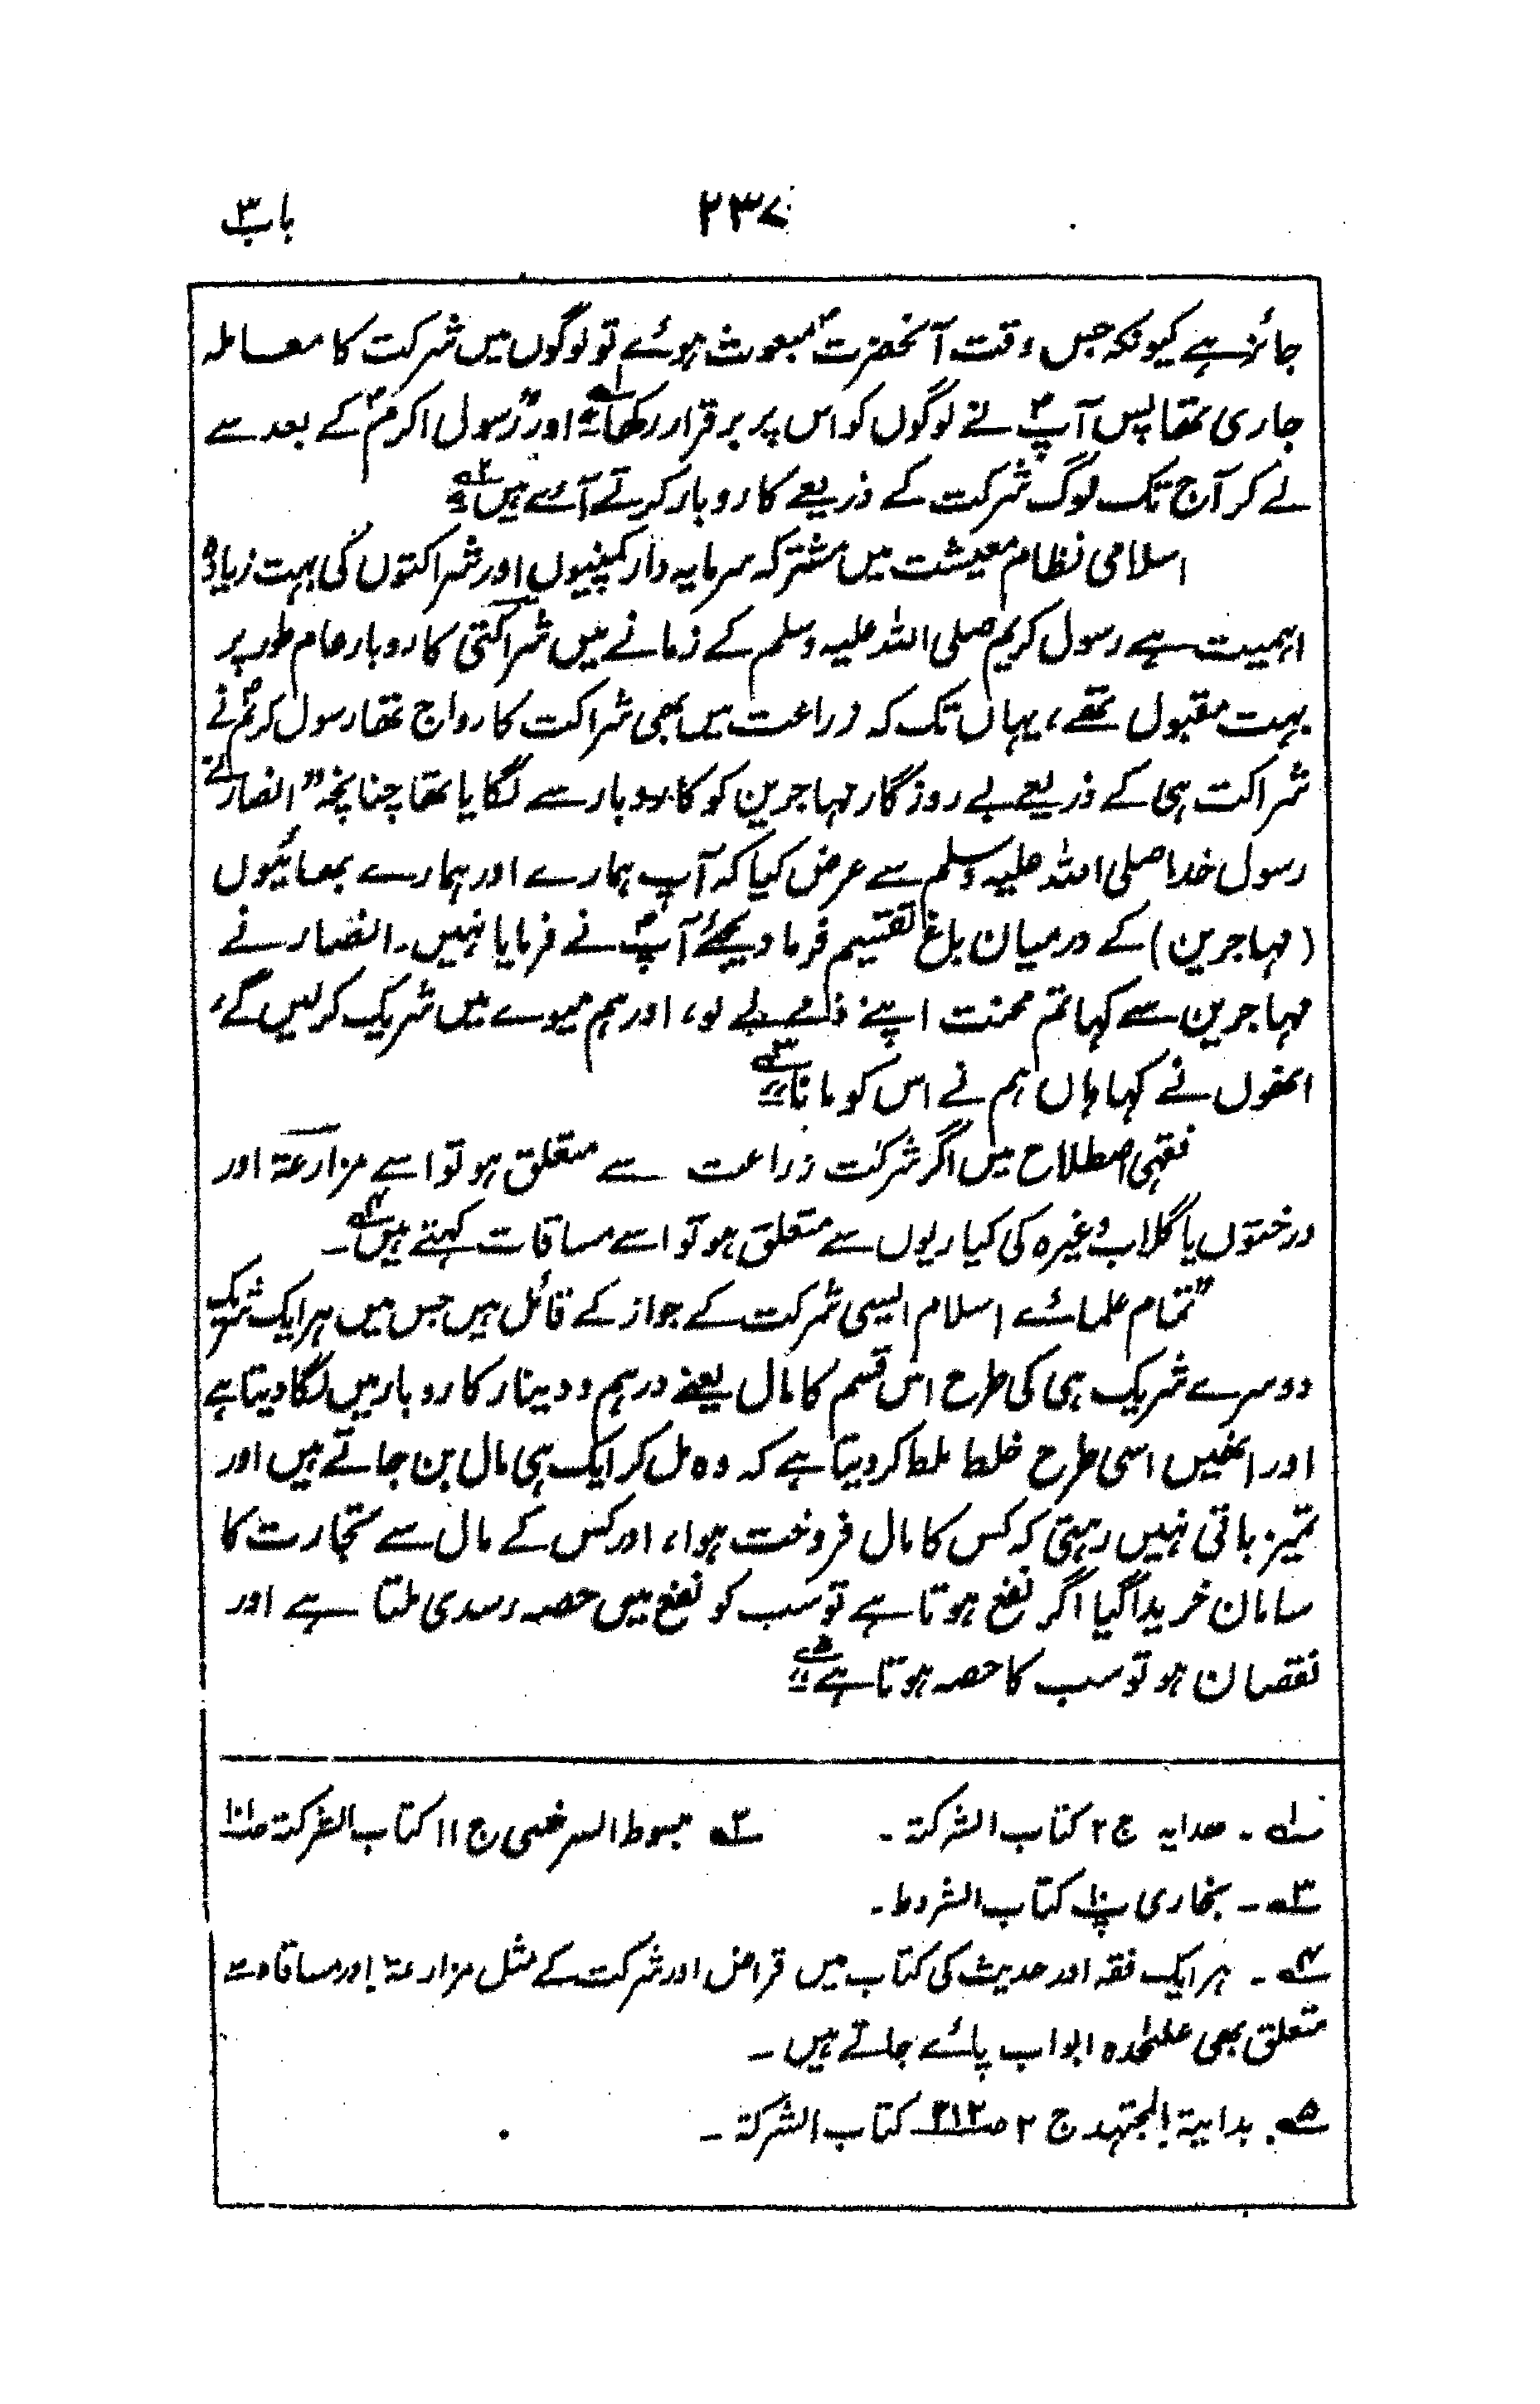 باب ۳
۲۳۷
جائز ہے کیونکہ جس وقت آنحضرتؐ مبعوث ہوئے تو لوگوں میں شرکت کا معاملہ
جاری تھا پس آپؐ نے لوگوں کو اس پر برقرار رکھا"۱؎ اور "رسول اکرمؐ کے بعد سے
لے کر آج تک لوگ شرکت کے ذریعے کاروبار کرتے آئے ہیں"۲؎
اسلامی نظام معیشت میں مشترکہ سرمایہ دار کمپنیوں اور شراکتوں کی بہت زیادہ
اہمیت ہے رسول کریم صلی اللہ علیہ وسلم کے زمانے میں شراکتی کاروبار عام طور پر
بہت مقبول تھے، یہاں تک کہ زراعت میں بھی شراکت کا رواج تھا رسول کریمؐ نے
شراکت ہی کے ذریعے بے روزگار مہاجرین کو کاروبار سے لگایا تھا چنانچہ "انصار نے
رسول خدا صلی اللہ علیہ وسلم سے عرض کیا کہ آپ ہمارے اور ہمارے بھائیوں
(مہاجرین) کے درمیان باغ تقسیم فرما دیجئے آپؐ نے فرمایا نہیں۔ انصار نے
مہاجرین سے کہا تم محنت اپنے ذمے لے لو، اور ہم میوے میں شریک کرلیں گے،
انھوں نے کہا ہاں ہم نے اس کو مانا"۳؎
فقہی اصطلاح میں اگر شرکت زراعت سے متعلق ہو تو اسے مزارعۃ اور
درختوں یا گلاب وغیرہ کی کیاریوں سے متعلق ہو تو اسے مساقات کہتے ہیں۴؎۔
"تمام علمائے اسلام ایسی شرکت کے جواز کے قائل ہیں جس میں ہر ایک شریک
دوسرے شریک ہی کی طرح اس قسم کا مال یعنے درہم و دینار کاروبار میں لگا دیتا ہے
اور انھیں اسی طرح خلط ملط کردیتا ہے کہ وہ مل کر ایک ہی مال بن جاتے ہیں اور
تمیز باقی نہیں رہتی کہ کس کا مال فروخت ہوا، اور کس کے مال سے تجارت کا
سامان خریدا گیا اگر نفع ہوتا ہے تو سب کو نفع میں حصہ رسدی ملتا ہے اور
نقصان ہو تو سب کا حصہ ہوتا ہے"۵؎
۱؎۔ ھدایہ ج ۲ کتاب الشرکۃ۔ ۲؎ مبسوط السرخسی ج ۱۱ کتاب الشرکۃ
۳؎۔ بخاری پ کتاب الشروط۔
۴؎۔ ہر ایک فقہ اور حدیث کی کتاب میں قراض اور شرکت کے مثل مزارعۃ اور مساقاۃ سے
متعلق بھی علٰحدہ ابواب پائے جاتے ہیں۔
۵؎۔ بدایۃ المجتہد ج ۲ ص ۲۱۲ کتاب الشرکۃ۔